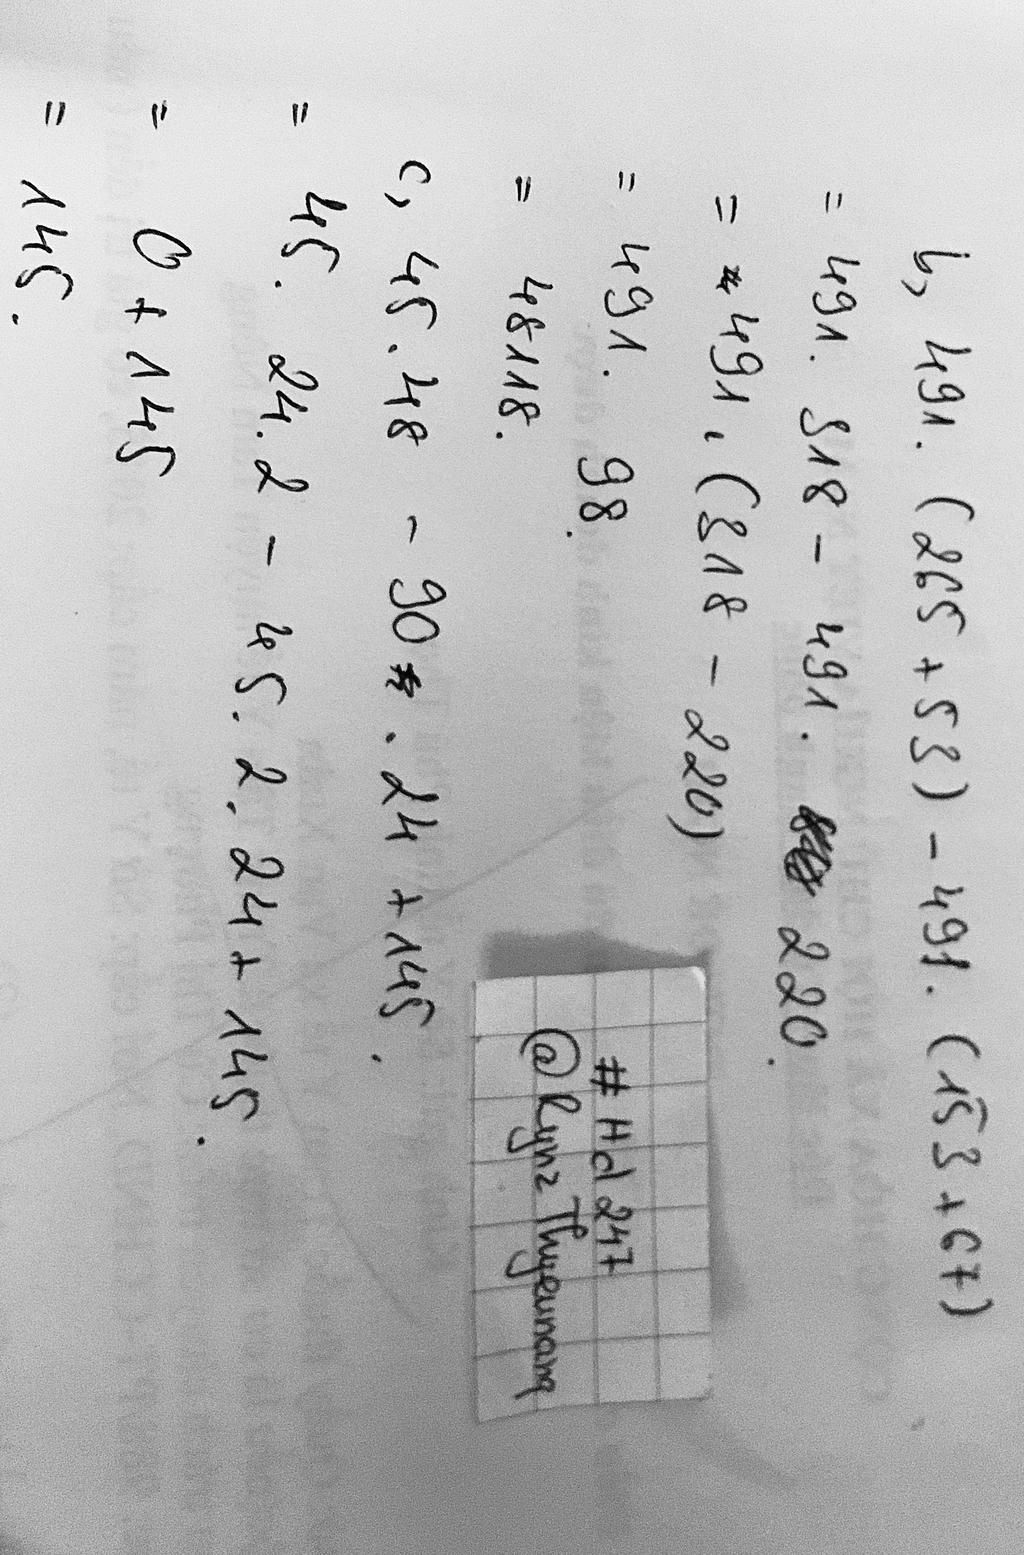 b, 491. (265 + 53) - 491. (153 + 67)
= 491. 318 - 491. 220.
= 491. (318 - 220)
= 491. 98.
= 48118.
c, 45.48 - 90 . 24 + 145.
= 45. 24.2 - 45.2.24 + 145.
= 0 + 145
= 145.
# Hd 247
@Rynz Thyeunang